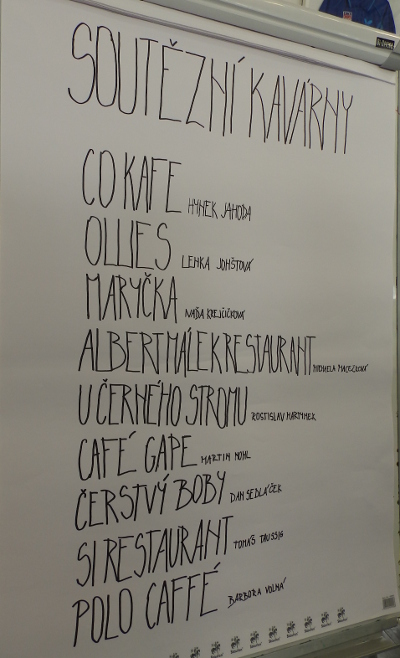 SOUTĚZNÍ KAVÁRNY
CO KAFE HYNEK JAHODA
OLLIES LENKA JOHŠTOVÁ
MARYČKA NAĎA KREJČIČKOVÁ
ALBERTMÁLEKRESTAURANT
U ČERNÉHO STROMU ROSTISLAV MARYNIEK
CAFÉ GAPE MARTIN MOHL
ČERSTVÝ BOBY DAN SEDLÁČEK
SI RESTAURANT TOMÁŠ TAUSSIG
POLO CAFFÉ BARBORA VOLNÁ